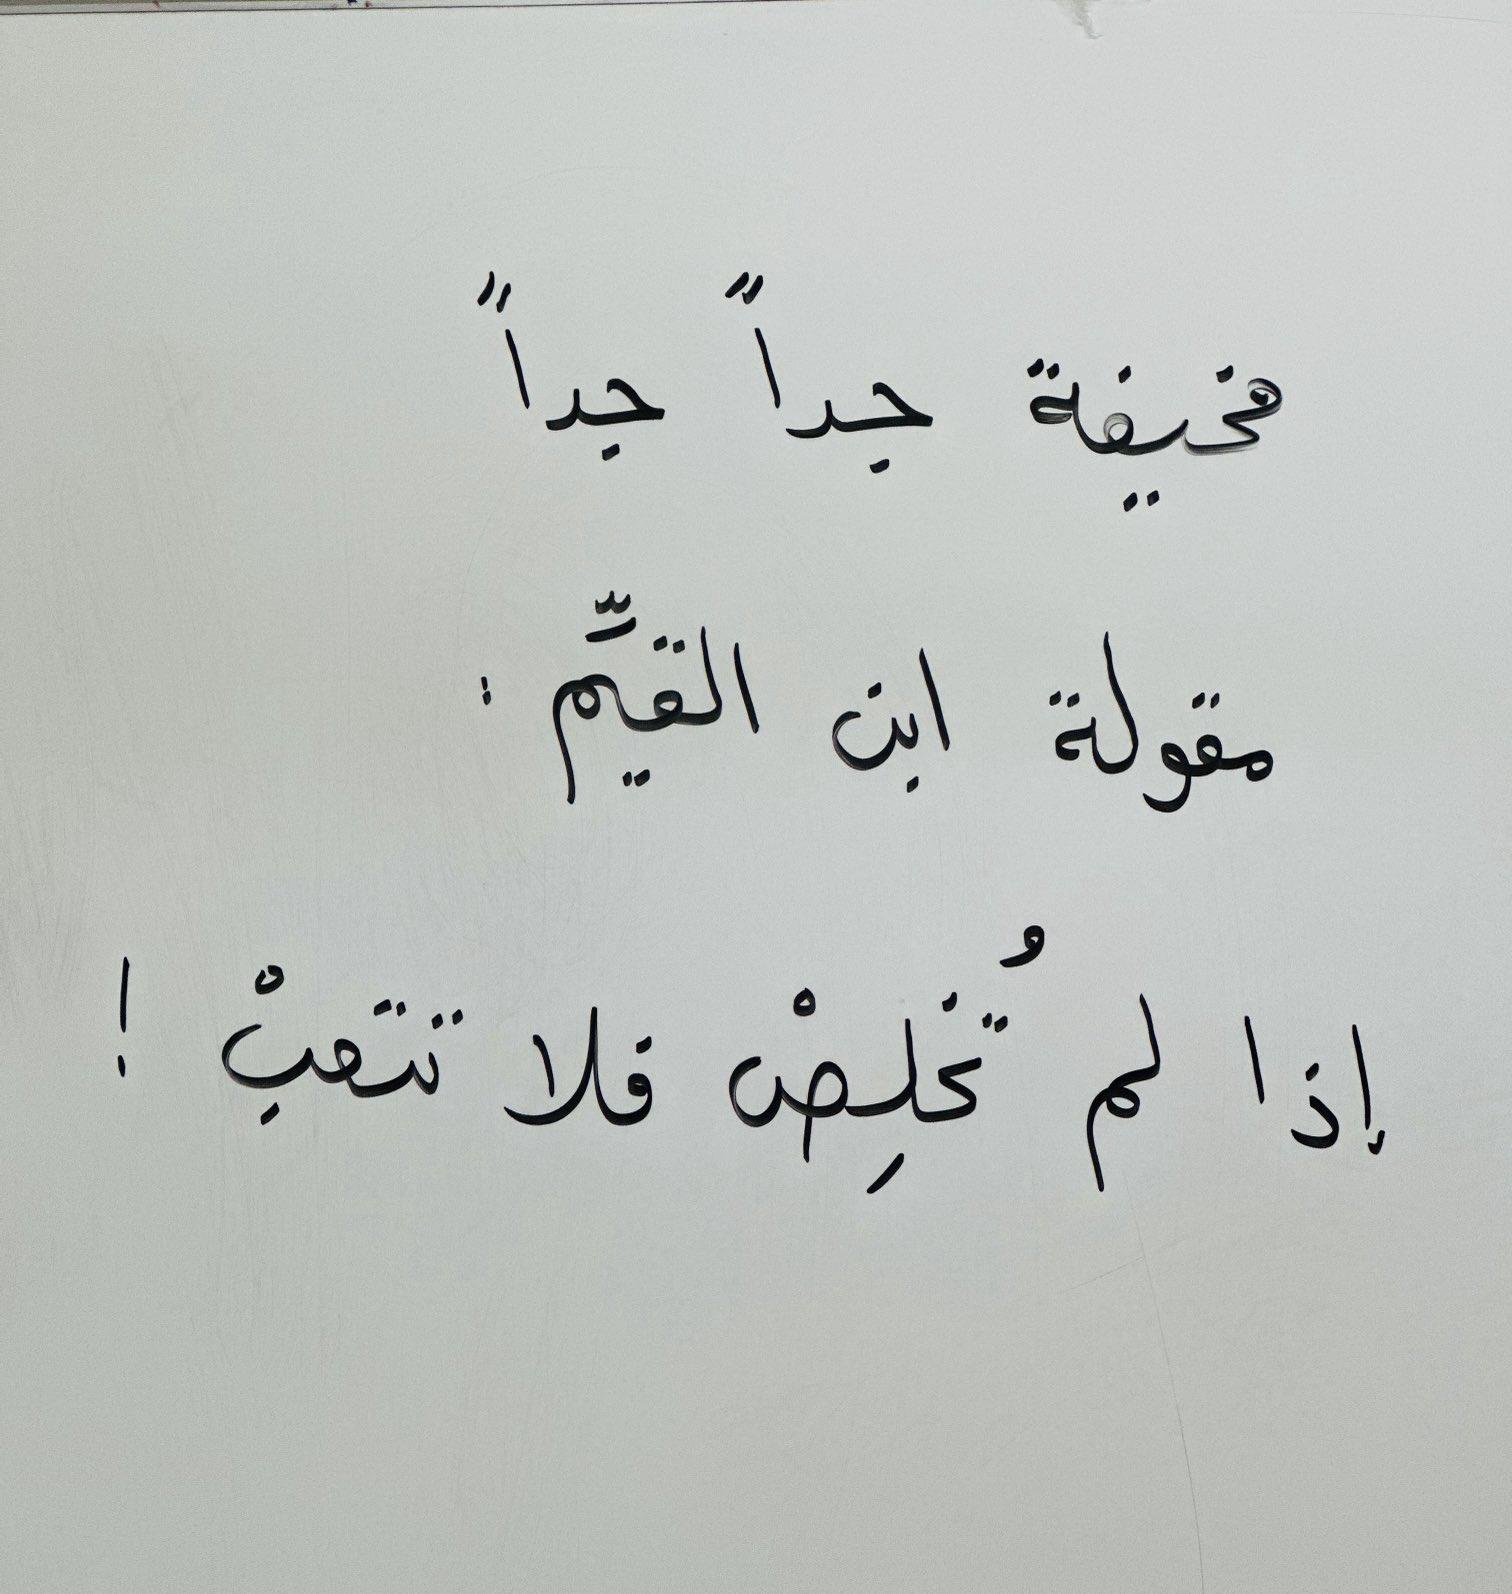 مخيفة جداً جداً
مقولة ابن القيّم :
إذا لم تُخلِصْ فلا تتعبْ !